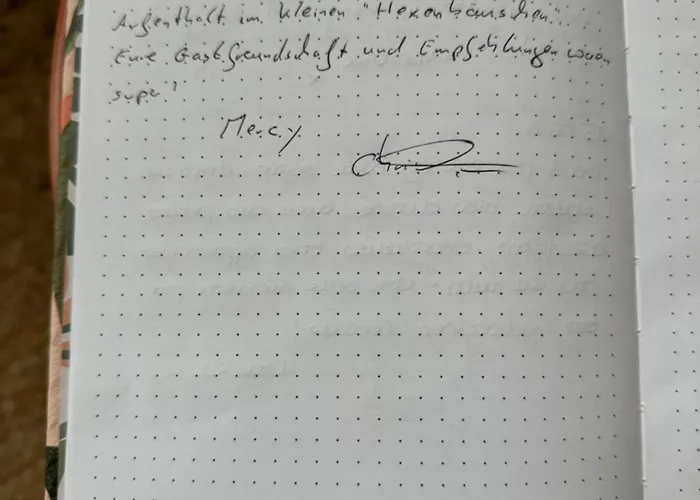 Aufenthalt im kleinen "Hexenhäuschen".
Eure Gastfreundschaft und Empfehlungen waren
super!
Mercy